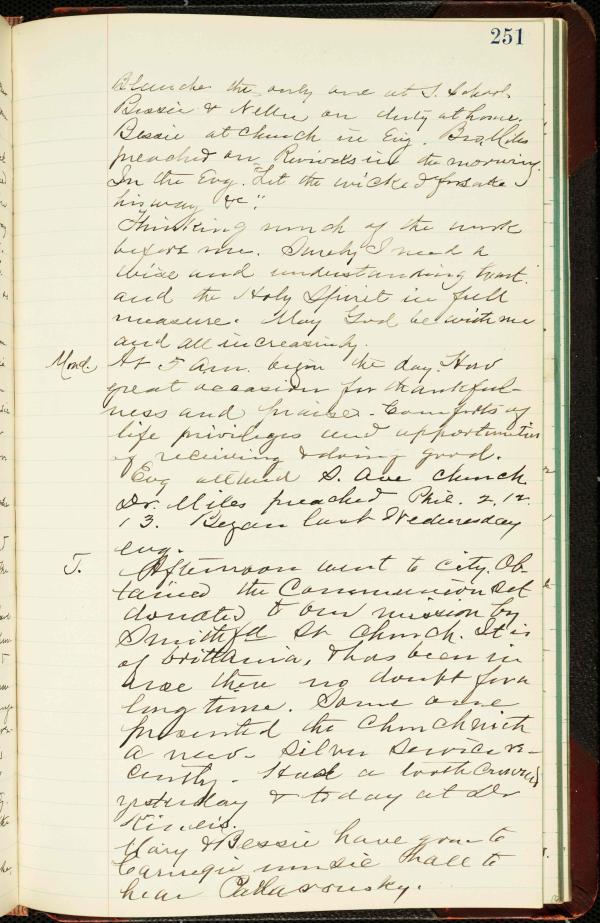 251
Blanche the only one at S. School.
Bessie & Nellie on duty at home.
Bessie at church in Evg. Bro. Miles
preached on Revivals in the morning.
In the Evg. "Let the wicked forsake
his way &c".
Thinking much of the work
before me. Surely I need a
wise and understanding heart.
and the Holy Spirit in full
measure. May God be with me
and all increasingly.
Mond. At 5 am. begin the day. How
great occasion for thankful-
ness and praise. Comforts of
life privileges and opportunities
of receiving & doing good.
Evg attend S. Ave church
Dr. Miles preached Phil. 2.12.
13. Began last Wednesday
evg.
T. Afternoon went to city. Ob-
tained the Communion Set
donated to our mission by
Smithfd St. Church. It is
of brittania, & has been in
use there no doubt for a
long time. Some one
presented the Church with
a new silver service re-
cently. Had a tooth crowned
yesterday & today at Dr
Mary & Bessie have gone to
Carnegie music hall to
hear